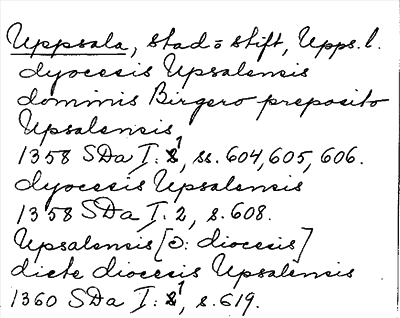 Uppsala, stad o stift, Upps. l.
dyocesis Upsalensis
dominis Birgero preposito
Upsalensis
1358 SDa I: 1, ss. 604, 605, 606.
dyocesis Upsalensis
1358 SDa I: 2, s. 608.
Upsalensis [ɔ: diocesis]
dicte diocesis Upsalensis
1360 SDa I: 1, s. 619.